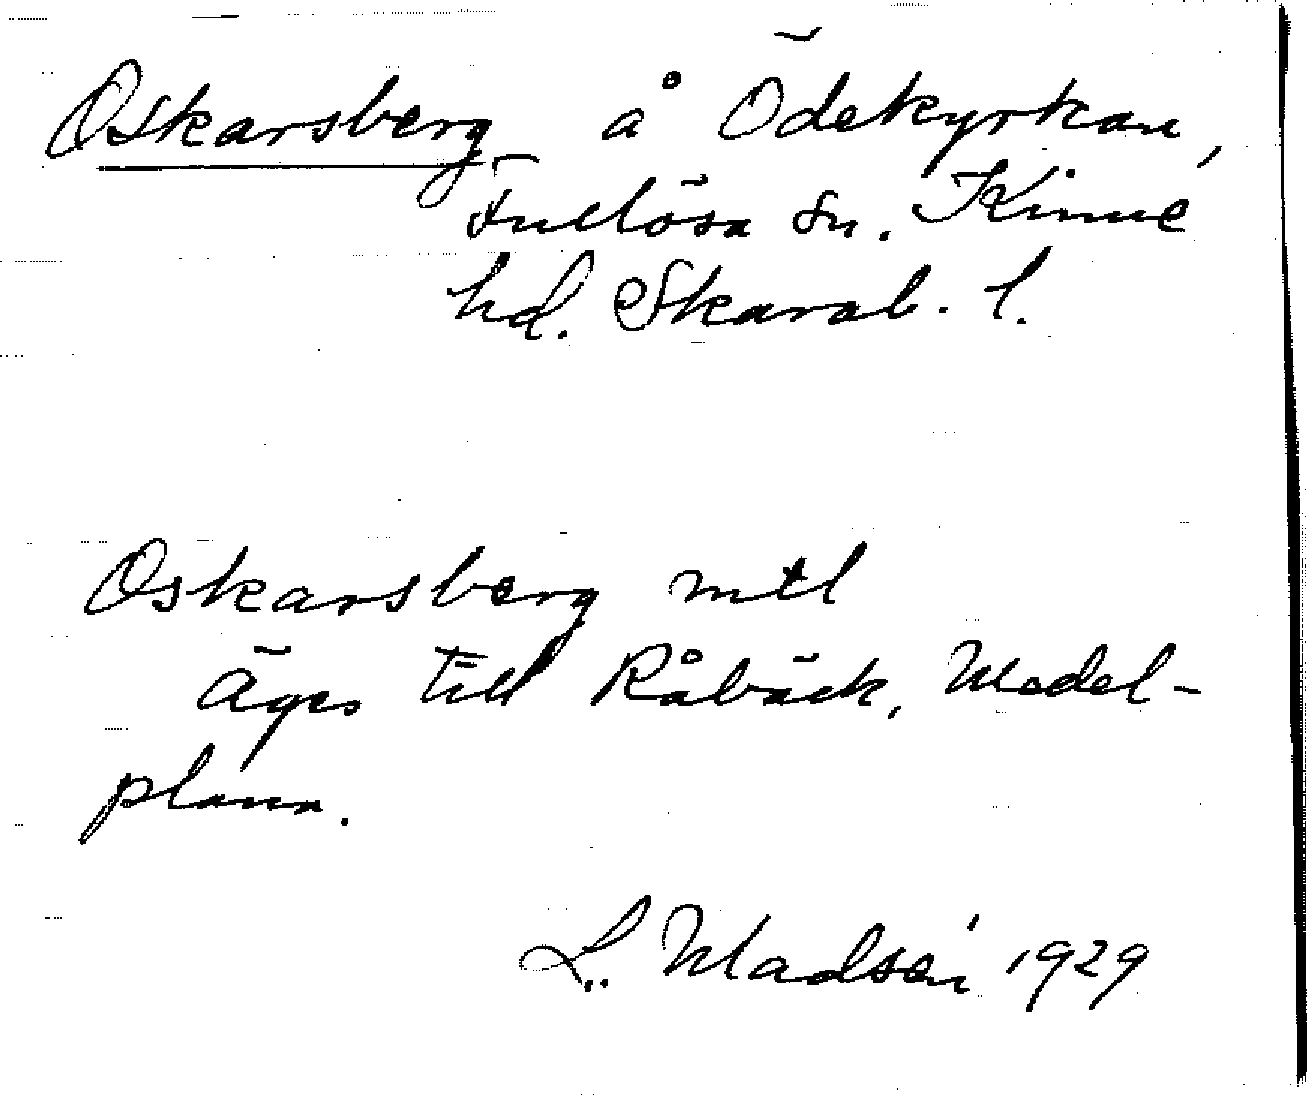 Oskarsberg å Ödekyrkan,
Fullösa sn. Kinne
hd. Skarab. l.
Oskarsberg mtl
Äges till Råbäck, Medel-
plana.
L. Madsén 1929